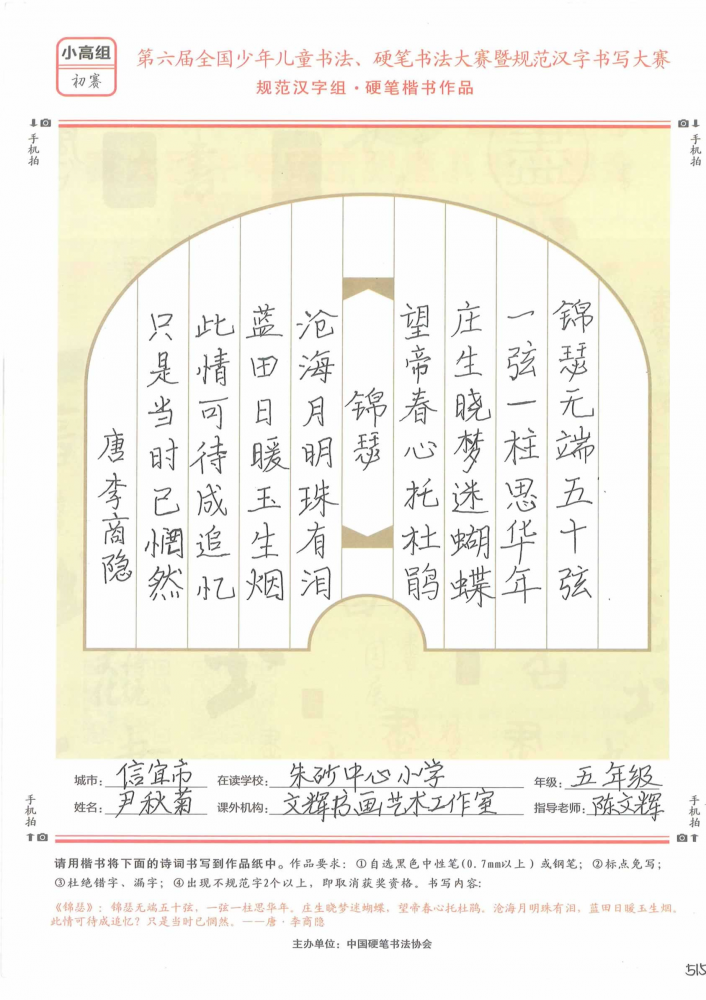 小高组
初赛
第六届全国少年儿童书法、硬笔书法大赛暨规范汉字书写大赛
规范汉字组·硬笔楷书作品
手机拍
手机拍
锦瑟无端五十弦
一弦一柱思华年
庄生晓梦迷蝴蝶
望帝春心托杜鹃
锦瑟
沧海月明珠有泪
蓝田日暖玉生烟
此情可待成追忆
只是当时已惘然
唐 李商隐
城市：信宜市 在读学校：朱砂中心小学 年级：五年级
姓名：尹秋菊 课外机构：文辉书画艺术工作室 指导老师：陈文辉
手机拍
手机拍
请用楷书将下面的诗词书写到作品纸中。作品要求：①自选黑色中性笔(0.7mm以上)或钢笔；②标点免写；
③杜绝错字、漏字；④出现不规范字2个以上，即取消获奖资格。书写内容：
《锦瑟》：锦瑟无端五十弦，一弦一柱思华年。庄生晓梦迷蝴蝶，望帝春心托杜鹃。沧海月明珠有泪，蓝田日暖玉生烟。
此情可待成追忆？只是当时已惘然。——唐·李商隐
主办单位：中国硬笔书法协会
515